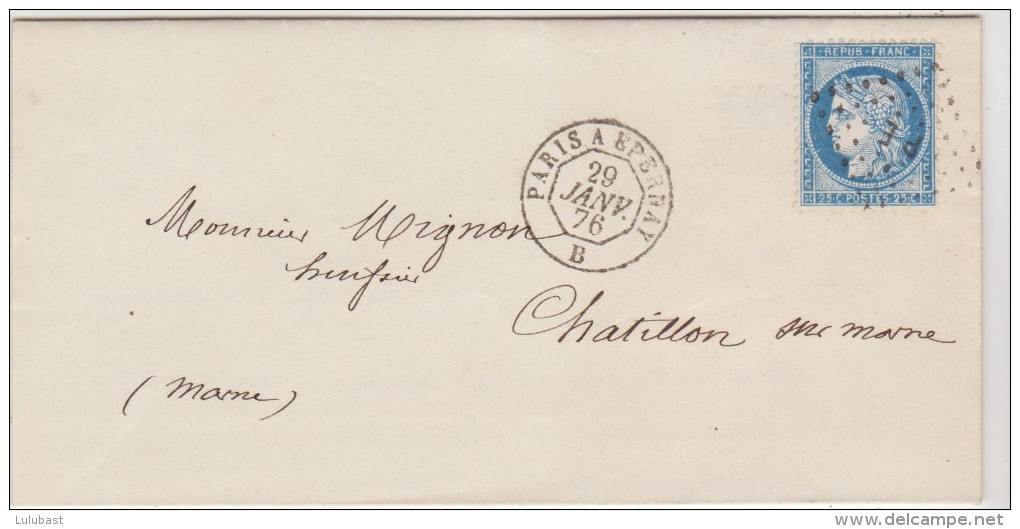 REPUB · FRANC
25 C POSTES 25 C
P E
PARIS A EPERNAY
29
JANV.
76
B
Monsieur Mignon
huissier
Chatillon sur marne
(Marne)
Lulubast
delcampe.net